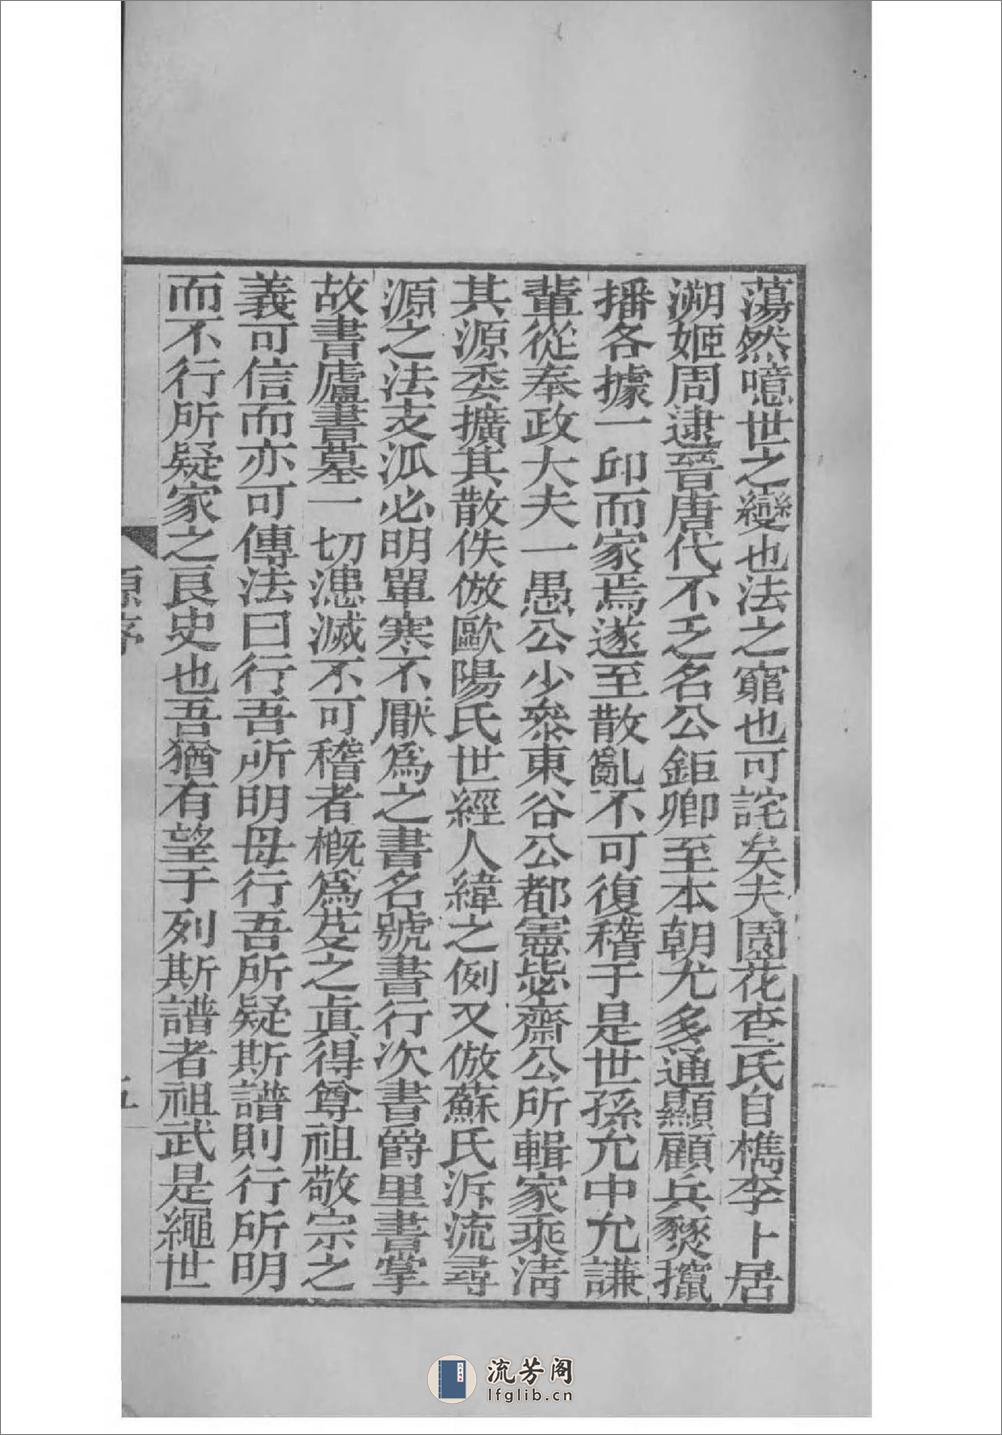 蕩然噫世之變也法之窮也可詫矣夫園花查氏自檇李卜居
溯姬周逮晉唐代不乏名公鉅卿至本朝尤多通顯顧兵燹攛
播各據一卬而家焉遂至散亂不可復稽于是世孫允中允謙
輩從奉政大夫一愚公少叅東谷公都憲毖齋公所輯家乘淸
其源委擴其散佚倣歐陽氏世經人緯之例又倣蘇氏泝流尋
源之法支泒必明單寒不厭爲之書名號書行次書爵里書掌
故書廬書墓一切漶滅不可稽者槪爲芟之眞得尊祖敬宗之
義可信而亦可傳法曰行吾所明毋行吾所疑斯譜則行所明
而不行所疑家之良史也吾猶有望于列斯譜者祖武是繩世
原序
五
流芳阁
lfglib.cn